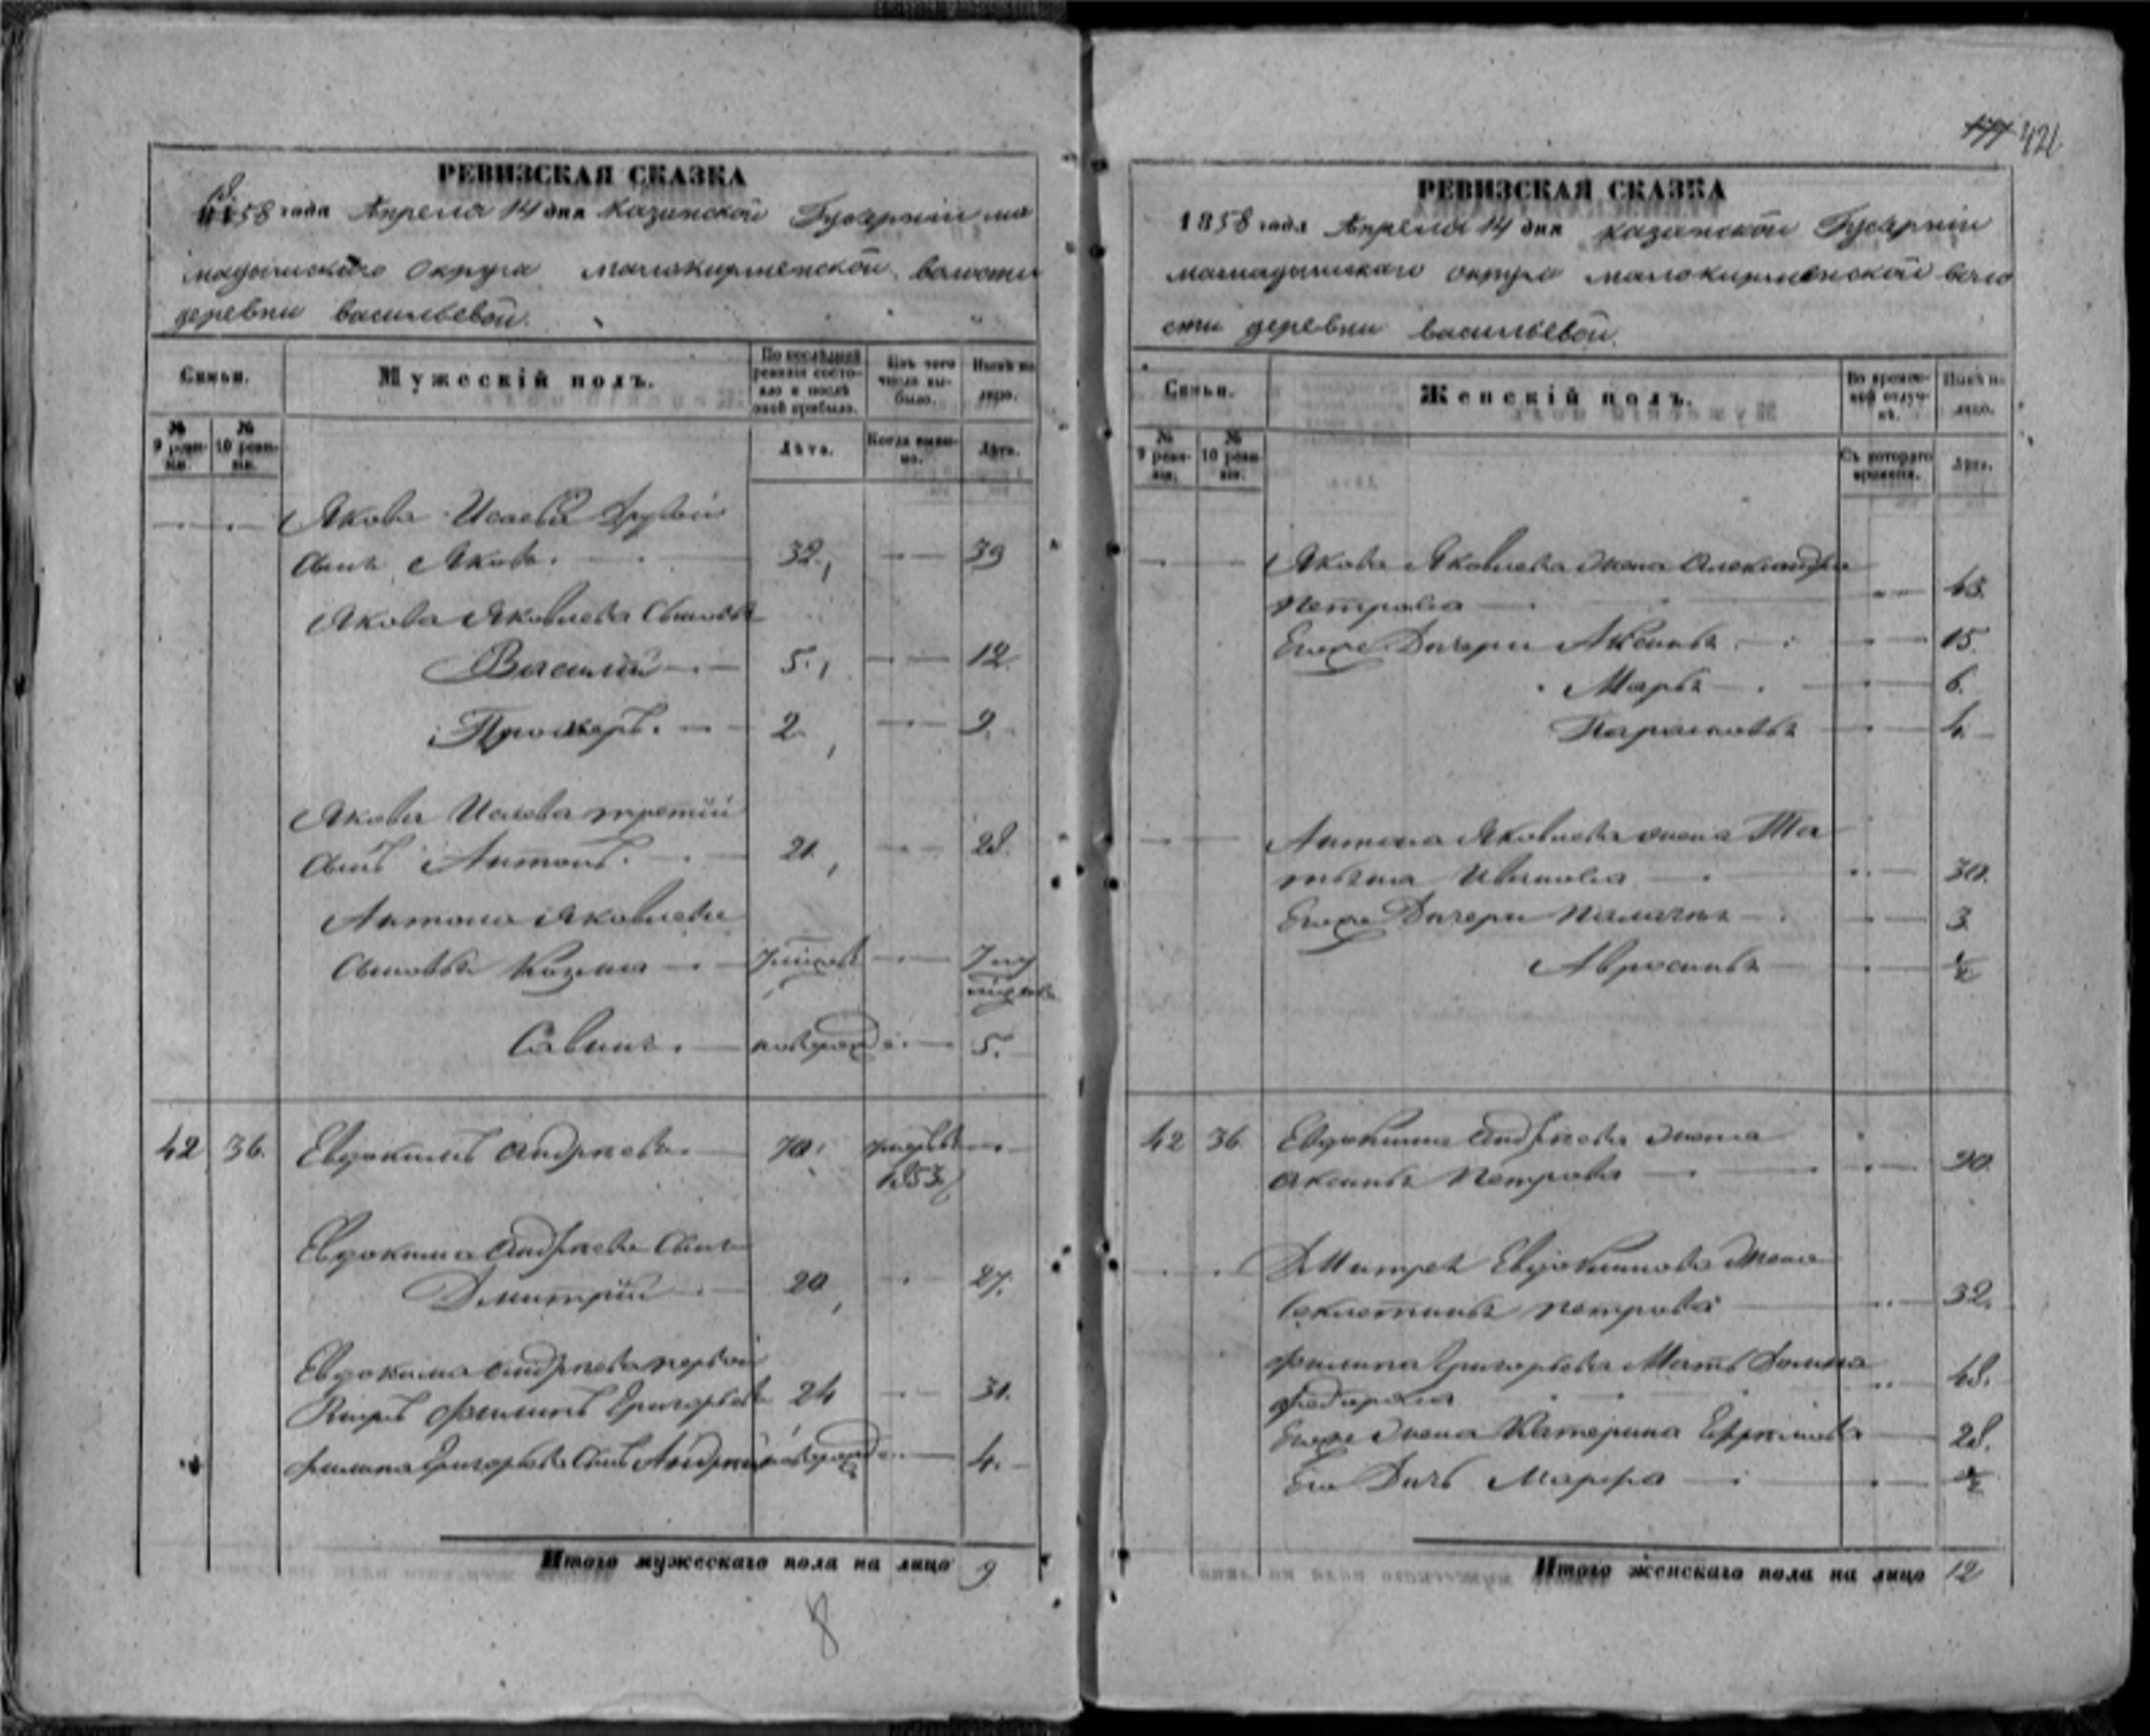 РЕВИЗСКАЯ СКАЗКА
1858 года Апреля 14 дня Казанской Губернiи ма
мадышскаго Округа малокирменской волости
деревни васильевой.
Семьи.
Мужескiй полъ.
По послѣдней ревизiи состояло и послѣ оной прибыло.
Изъ того числа выбыло.
Нынѣ на лицо.
№ 9 ревизiи.
№ 10 ревизiи.
Лѣта.
Когда именно.
Лѣта.
Якова Исаева Другой
сынъ Яковъ. 32 39
Якова Яковлева Сыновья
Василiй 5 12
Прохоръ. 2 9.
Якова Исаева третiй
сынъ Антонъ. 21 28.
Антона Яковлева
сыновья Козма
Савинъ. новорожд. 5.
42 36. Евдокимъ Андреевъ 70 1853
Евдокима Андреева Сынъ
Дмитрiй 20 27.
Евдокима Андреева первой
Филипъ Григорьевъ 24 31.
Филипа Григорьева Сынъ Андрей новорожд. 4.
Итого мужескаго пола на лицо 9
8
421
РЕВИЗСКАЯ СКАЗКА
1858 года Апреля 14 дня казанской Губернiи
мамадышскаго округа малокирменской воло
сти деревни васильевой.
Семьи.
Женскiй полъ.
Во временной отлучкѣ.
Нынѣ на лицо.
№ 9 ревизiи.
№ 10 ревизiи.
Съ котораго времени.
Лѣта.
Якова Яковлева жена Александра
Петрова 43.
Егоже Дочери Аксинья 15.
Марья 6.
Парасковья 4.
Антона Яковлева жена Та
тьяна Иванова 30.
Егоже Дочери Палагья 3
Авросинья ½
42 36. Евдокима Андреева жена
Аксинья Петрова 90.
Дмитрея Евдокимова Жена
Секлетинья петрова 32.
Филипа Григорьева Мать Домна
Федорова 48.
Егоже жена Катерина Ефремова 28.
Его Дочь Марфа ½
Итого женскаго пола на лицо 12